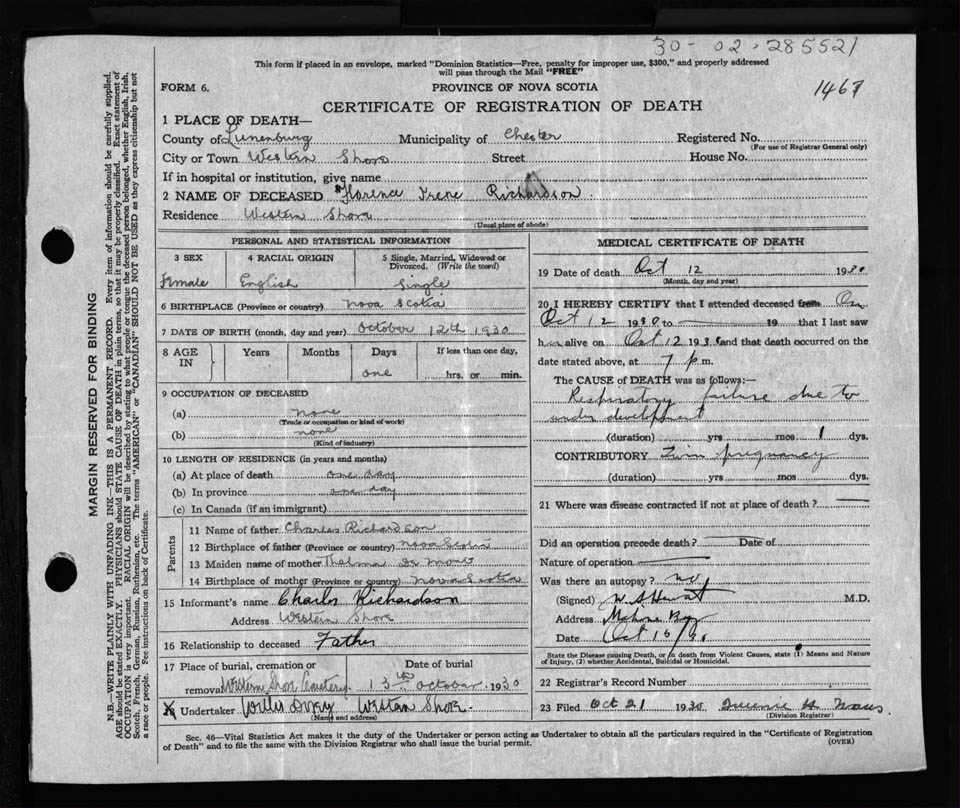 30-02-285521
This form if placed in an envelope, marked "Dominion Statistics—Free, penalty for improper use, $300," and properly addressed
will pass through the Mail "FREE"
FORM 6.
PROVINCE OF NOVA SCOTIA
1467
CERTIFICATE OF REGISTRATION OF DEATH
1 PLACE OF DEATH—
County of Lunenburg Municipality of Chester Registered No.
(For use of Registrar General only)
City or Town Western Shore Street House No.
If in hospital or institution, give name
2 NAME OF DECEASED Florence Irene Richardson
Residence Western Shore
(Usual place of abode)
PERSONAL AND STATISTICAL INFORMATION
3 SEX
Female
4 RACIAL ORIGIN
English
5 Single, Married, Widowed or
Divorced. (Write the word)
Single
6 BIRTHPLACE (Province or country) Nova Scotia
7 DATE OF BIRTH (month, day and year) October 12th 1930
8 AGE
IN
Years
Months
Days
one
If less than one day,
hrs. or min.
9 OCCUPATION OF DECEASED
(a) none
(Trade or occupation or kind of work)
(b) none
(Kind of industry)
10 LENGTH OF RESIDENCE (in years and months)
(a) At place of death one day
(b) In province one day
(c) In Canada (if an immigrant)
Parents
11 Name of father Charles Richardson
12 Birthplace of father (Province or country) Nova Scotia
13 Maiden name of mother Thelma
14 Birthplace of mother (Province or country) Nova Scotia
15 Informant's name Charles Richardson
Address Western Shore
16 Relationship to deceased Father
17 Place of burial, cremation or
removal Western Shore Cemetery
Date of burial
13th October 1930
Undertaker Western Shore
(Name and address)
MEDICAL CERTIFICATE OF DEATH
19 Date of death Oct 12 1930
(Month, day and year)
20 I HEREBY CERTIFY that I attended deceased from On
Oct 12 1930 to 19 that I last saw
her alive on Oct 12 193 and that death occurred on the
date stated above, at 7 p m.
The CAUSE of DEATH was as follows:—
Respiratory failure due to
under development
(duration) yrs mos 1 dys.
CONTRIBUTORY Twin pregnancy
(duration) yrs mos dys.
21 Where was disease contracted if not at place of death?
Did an operation precede death? Date of
Nature of operation
Was there an autopsy? no
(Signed) M.D.
Address Mahone Bay
Date Oct 16/30
State the Disease causing Death, or in death from Violent Causes, state (1) Means and Nature
of Injury, (2) whether Accidental, Suicidal or Homicidal.
22 Registrar's Record Number
23 Filed Oct 21 1930
(Division Registrar)
Sec. 46—Vital Statistics Act makes it the duty of the Undertaker or person acting as Undertaker to obtain all the particulars required in the "Certificate of Registration
of Death" and to file the same with the Division Registrar who shall issue the burial permit.
(OVER)
MARGIN RESERVED FOR BINDING
N.B.—WRITE PLAINLY WITH UNFADING INK—THIS IS A PERMANENT RECORD. Every item of information should be carefully supplied.
AGE should be stated EXACTLY. PHYSICIANS should STATE CAUSE OF DEATH in plain terms, so that it may be properly classified. Exact statement of
OCCUPATION is very important. RACIAL ORIGIN will be described by stating to what people or tongue the deceased person belonged, whether English, Irish,
Scotch, French, German, Russian, Ruthenian, etc. The terms "AMERICAN" or "CANADIAN" SHOULD NOT BE USED as they express citizenship but not
a race or people. See instructions on back of Certificate.